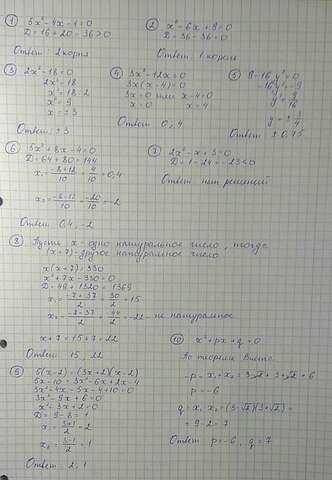 ① 5x²-4x-1=0
D=16+20=36>0
Ответ: 2 корня
② x²-6x+9=0
D=36-36=0
Ответ: 1 корень
③ 2x²-18=0
2x²=18
x²=18:2
x²=9
x=±3
Ответ: ±3
④ 3x²-12x=0
3x(x-4)=0
3x=0 или x-4=0
x=0 x=4
Ответ: 0; 4
⑤ 9-16y²=0
-16y²=-9
y²=9/16
y=±3/4
Ответ: ±0,75
⑥ 5x²+8x-4=0
D=64+80=144
x₁=(-8+12)/10=4/10=0,4
x₂=(-8-12)/10=-20/10=-2
Ответ: 0,4; -2
⑦ 2x²-x+3=0
D=1-24=-23<0
Ответ: нет решений
⑧ Пусть x-одно натуральное число, тогда
(x+7)-другое натуральное число
x(x+7)=330
x²+7x-330=0
D=49+1320=1369
x₁=(-7+37)/2=30/2=15
x₂=(-7-37)/2=-44/2=-22-не натуральное
x+7=15+7=22
Ответ: 15; 22
⑨ 5(x-2)=(3x+2)(x-2)
5x-10=3x²-6x+2x-4
3x²-4x-5x-4+10=0
3x²-9x+6=0
x²-3x+2=0
D=9-8=1
x₁=(3+1)/2=2
x₂=(3-1)/2=1
Ответ: 2; 1
⑩ x²+px+q=0
По теореме Виета:
-p=x₁+x₂=3-√2+3+√2=6
p=-6
q=x₁x₂=(3-√2)(3+√2)=
=9-2=7
Ответ: p=-6, q=7